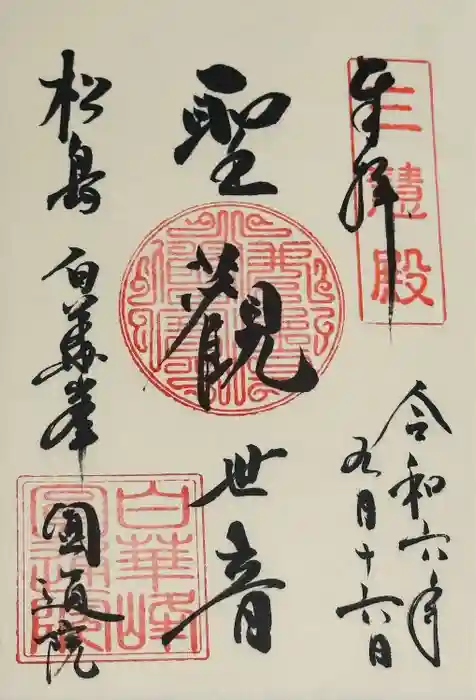 奉拝
三慧殿
令和六年
九月十六日
聖観世音
松島 白華峯 圓通院
白華峰
圓通院